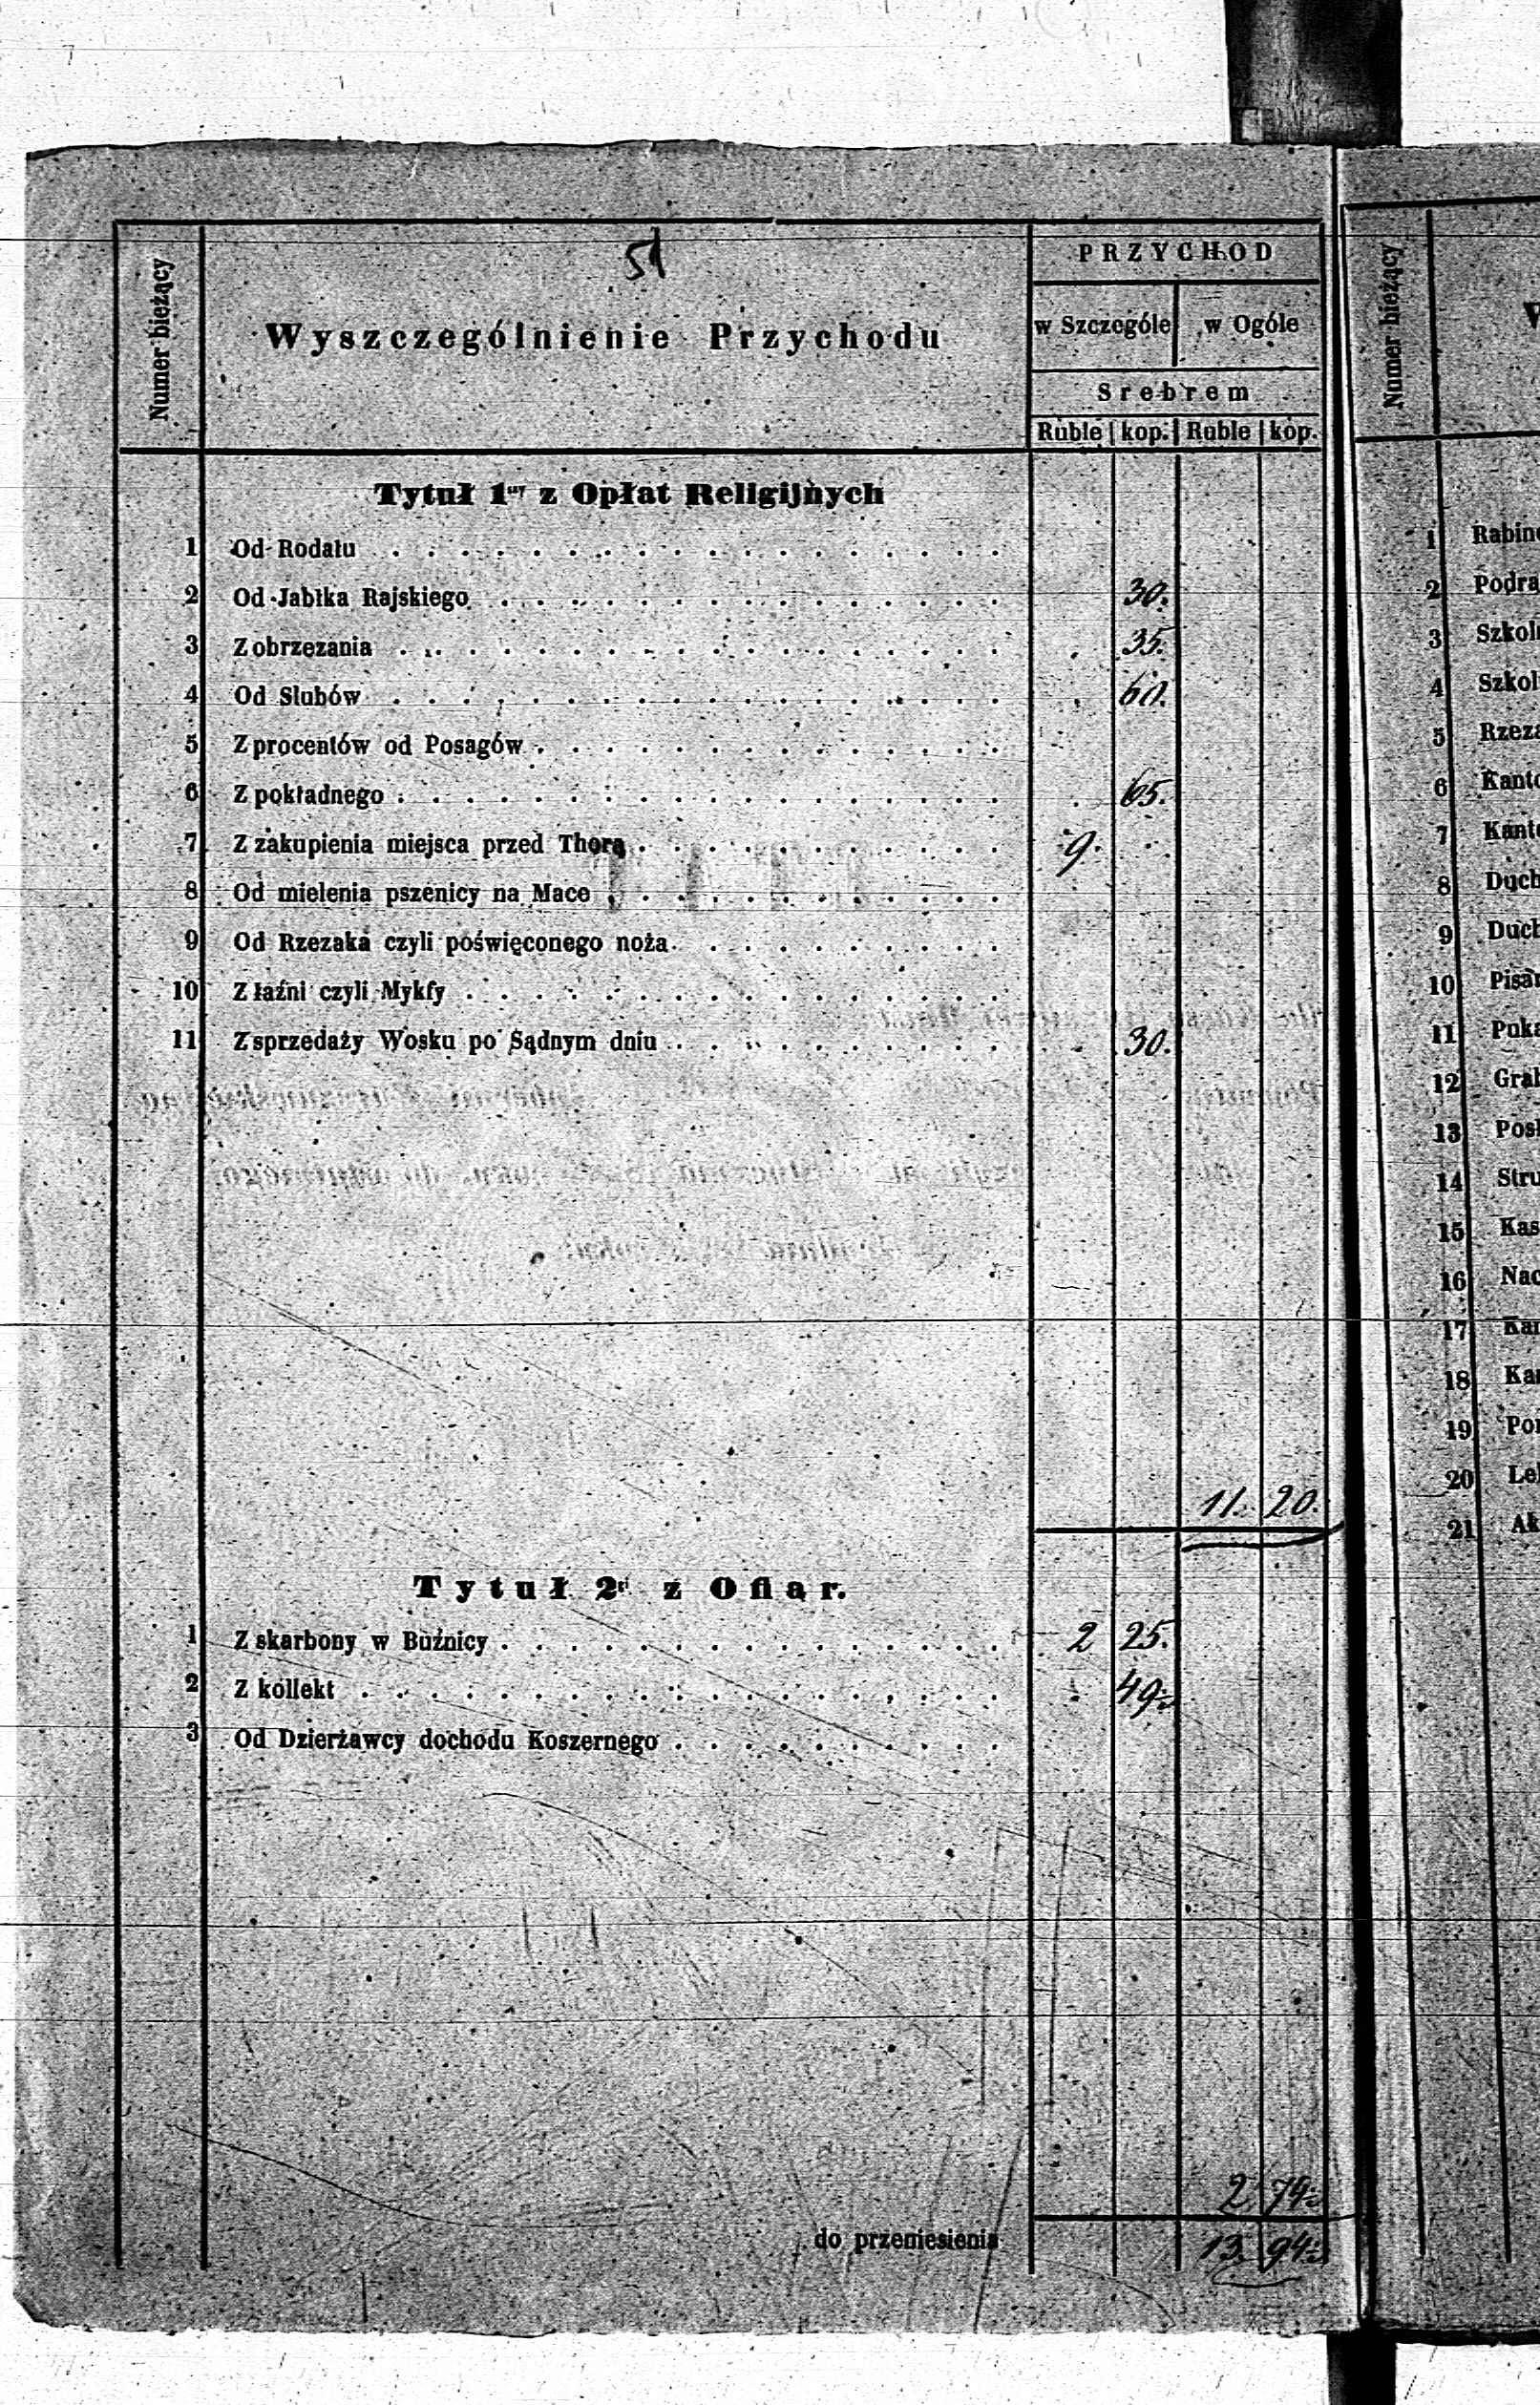 51
Numer bieżący
Wyszczególnienie Przychodu
PRZYCHOD
w Szczególe w Ogóle
Srebrem
Ruble kop. Ruble kop.
Tytuł 1szy z Opłat Religijnych
1 Od Rodału
2 Od Jabłka Rajskiego 30.
3 Z obrzezania 35.
4 Od Slubów 60.
5 Z procentów od Posagów
6 Z pokładnego 65.
7 Z zakupienia miejsca przed Thorą 9.
8 Od mielenia pszenicy na Mace
9 Od Rzezaka czyli poświęconego noża
10 Z łaźni czyli Mykfy
11 Z sprzedaży Wosku po Sądnym dniu 30.
11. 20.
Tytuł 2gi z Ofiar.
1 Z skarbony w Buźnicy 2 25.
2 Z kollekt 49
3 Od Dzierżawcy dochodu Koszernego
2 74
do przeniesienia 13. 94
Numer bieżący
1
2
3
4
5
6
7
8
9
10
11
12
13
14
15
16
17
18
19
20
21